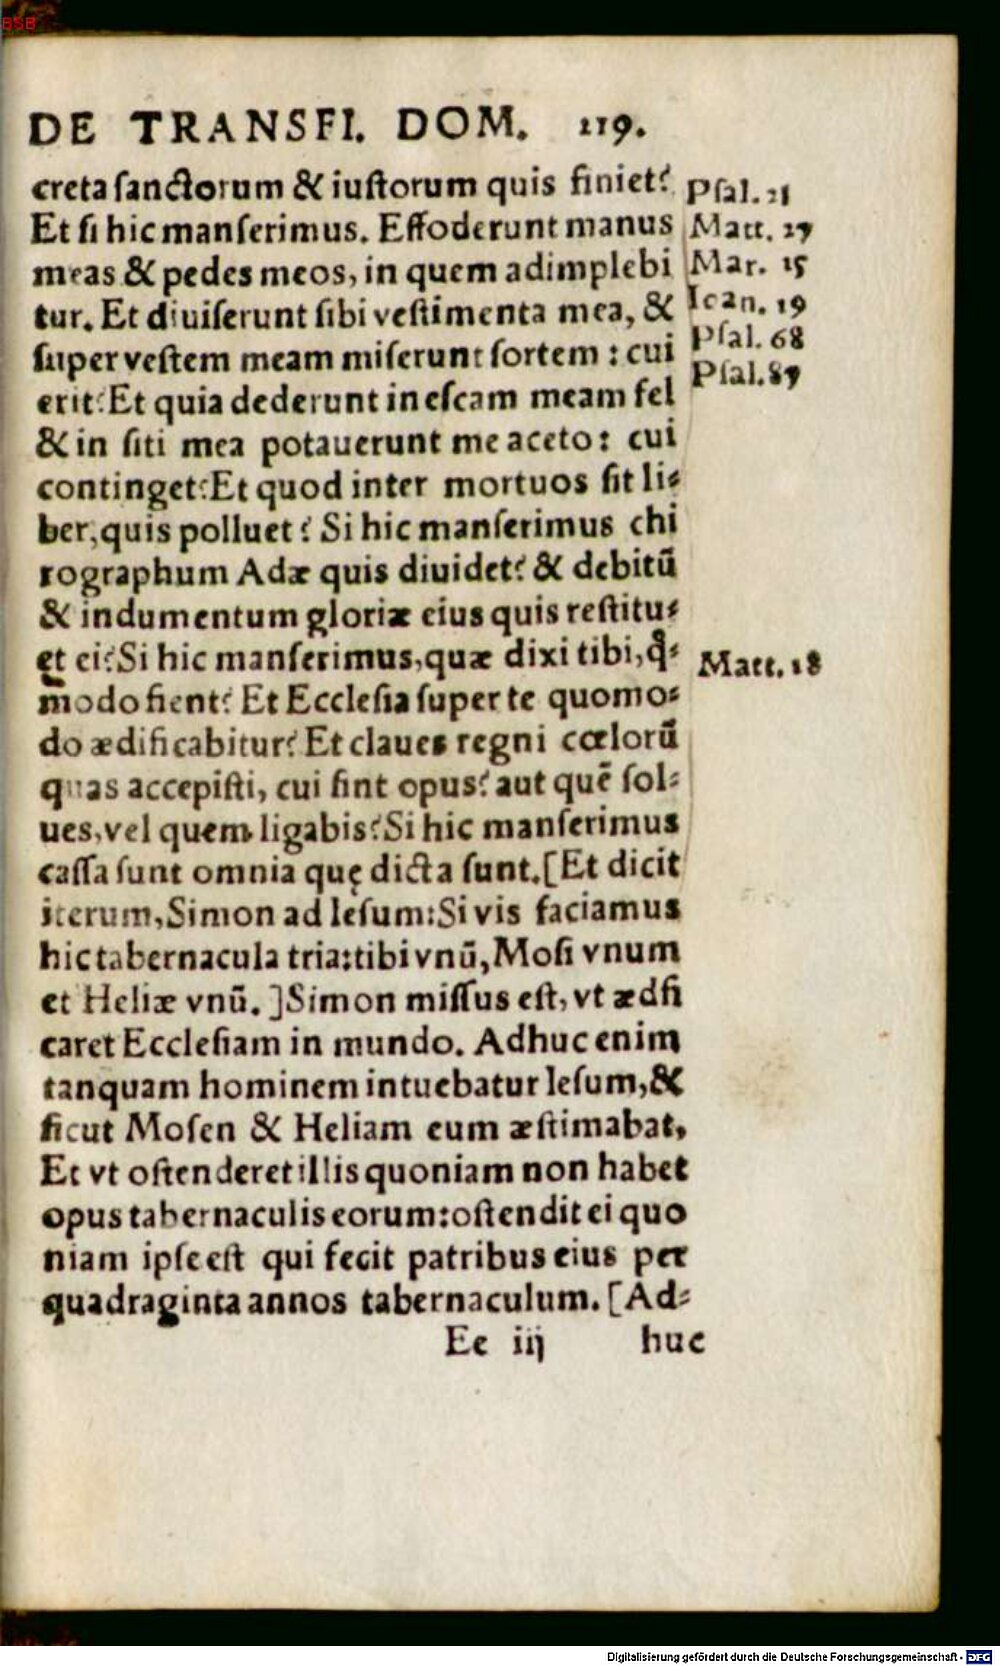 BSB
DE TRANSFI. DOM. 219.
creta sanctorum & iustorum quis finiet? Psal. 21
Et si hic manserimus. Effoderunt manus Matt. 27
meas & pedes meos, in quem adimplebi Mar. 15
tur. Et diuiserunt sibi vestimenta mea, & Ioan. 19
super vestem meam miserunt sortem : cui Psal. 68
erit? Et quia dederunt in escam meam fel Psal. 87
& in siti mea potauerunt me aceto: cui
continget? Et quod inter mortuos sit li-
ber, quis polluet? Si hic manserimus chi
rographum Adæ quis diuidet? & debitū
& indumentum gloriæ eius quis restitu-
et ei? Si hic manserimus, quæ dixi tibi, q̊- Matt. 18
modo fient? Et Ecclesia super te quomo-
do ædificabitur? Et claues regni cœlorū
quas accepisti, cui sint opus? aut quē sol-
ues, vel quem ligabis? Si hic manserimus
cassa sunt omnia quę dicta sunt. [Et dicit
iterum, Simon ad Iesum: Si vis faciamus
hic tabernacula tria: tibi vnū, Mosi vnum
et Heliæ vnū.] Simon missus est, vt ædfi
caret Ecclesiam in mundo. Adhuc enim
tanquam hominem intuebatur Iesum, &
sicut Mosen & Heliam eum æstimabat,
Et vt ostenderet illis quoniam non habet
opus tabernaculis eorum: ostendit ei quo
niam ipse est qui fecit patribus eius per
quadraginta annos tabernaculum. [Ad-
Ee iij huc
Digitalisierung gefördert durch die Deutsche Forschungsgemeinschaft - DFG